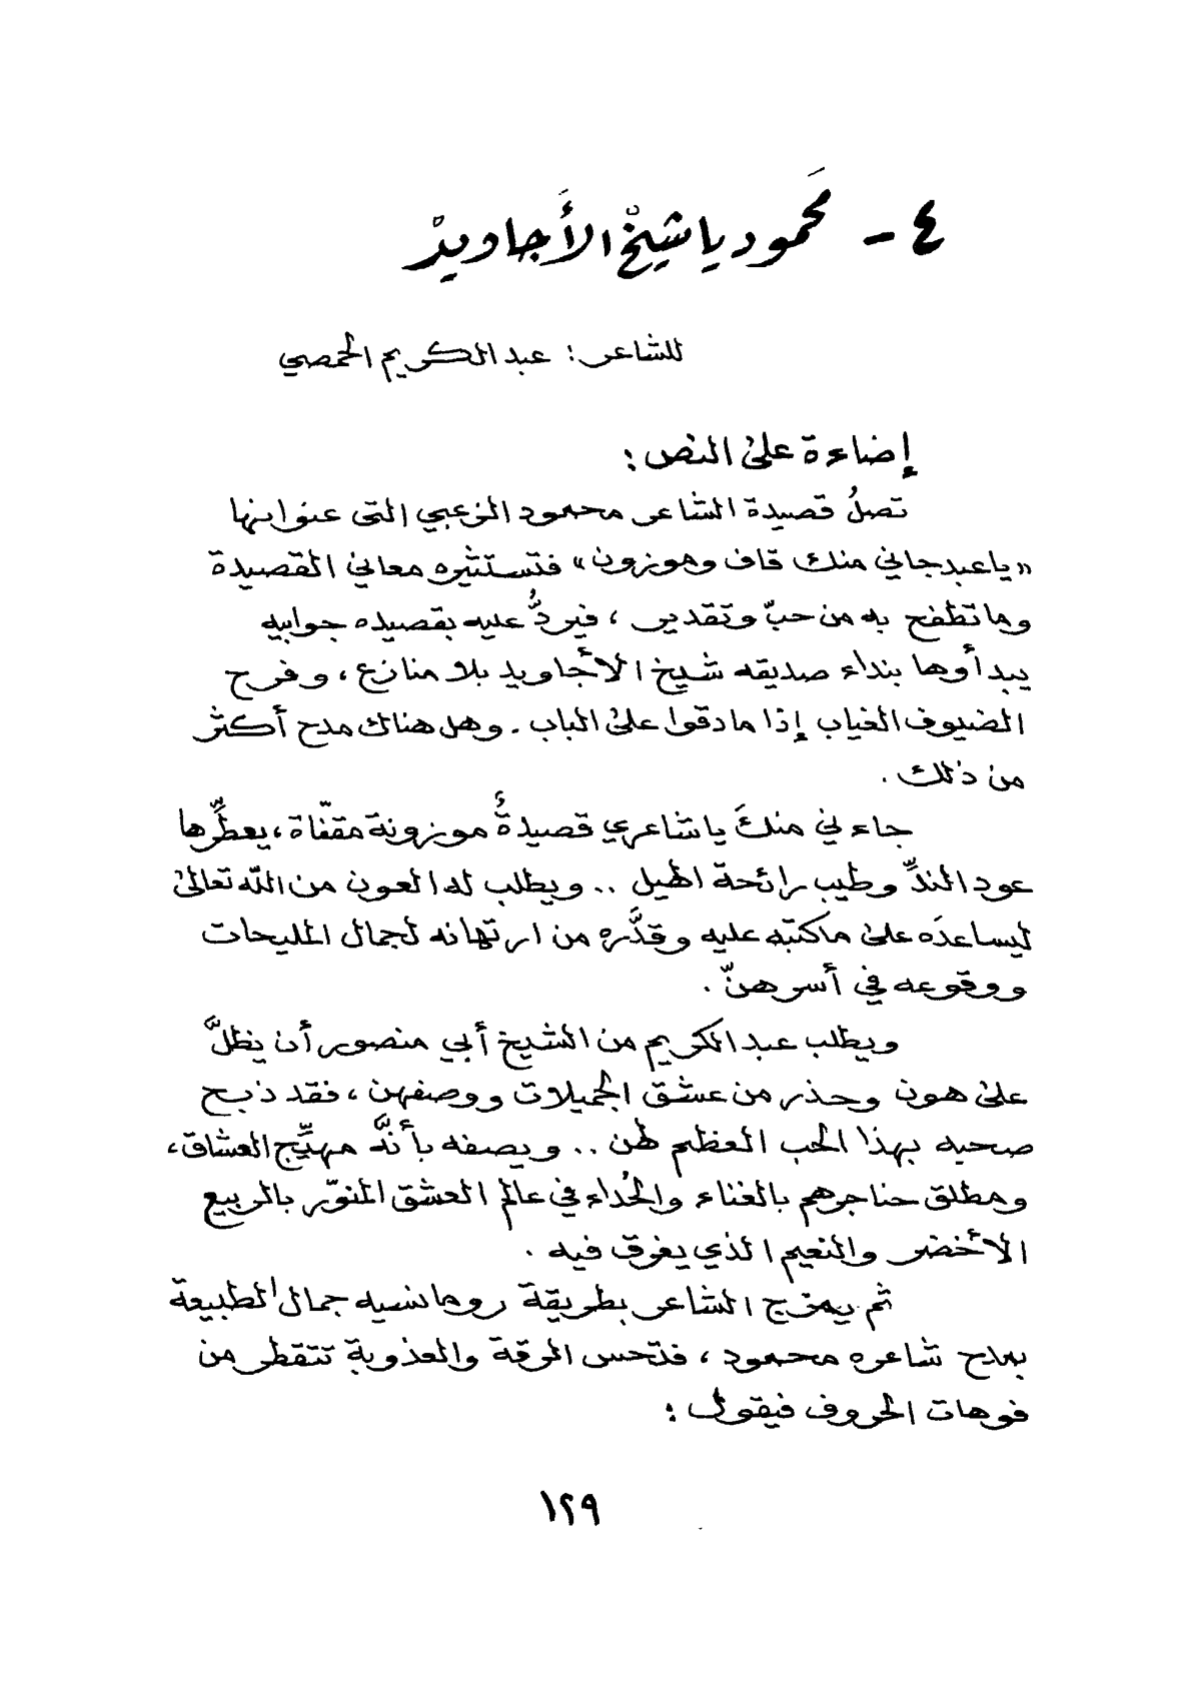 ٤ - مَحمود يا شيخْ الأَجاويدْ
للشاعر : عبد الكريم الحمصي
إضاءة على النص :
تصلُ قصيدة الشاعر محمود الزعبي التي عنوانها
« يا عبد جاني منك قاف وموزون » فتستثيره معاني القصيدة
وما تطفح به من حبّ وتقدير ، فيردُّ عليه بقصيده جوابيه
يبدأوها بنداء صديقه شيخ الأجاويد بلا منازع ، وفرح
الضيوف الغياب إذا ما دقوا على الباب . وهل هناك مدح أكثر
من ذلك .
جاءني منكَ يا شاعري قصيدةٌ موزونة مقفّاة ، يعطِّرها
عود الندِّ وطيب رائحة الهيل .. ويطلب له العون من الله تعالى
ليساعدَه على ما كتبه عليه وقدَّره من ارتهانه لجمال المليحات
ووقوعه في أسرهنّ .
ويطلب عبد الكريم من الشيخ أبي منصور أن يظلَّ
على هون وحذر من عشق الجميلات ووصفهن ، فقد ذبح
صحبه بهذا الحب العظيم لهن .. ويصفه بأنَّه مهيِّج العشاق ،
ومطلق حناجرهم بالغناء والحُداء في عالم العشق المنوّر بالربيع
الأخضر والنعيم الذي يغرق فيه .
ثم يمزج الشاعر بطريقة رومانسيه جمال الطبيعة
بمدح شاعره محمود ، فتحس الرقة والعذوبة تتقطر من
فوهات الحروف فيقول :
١٢٩